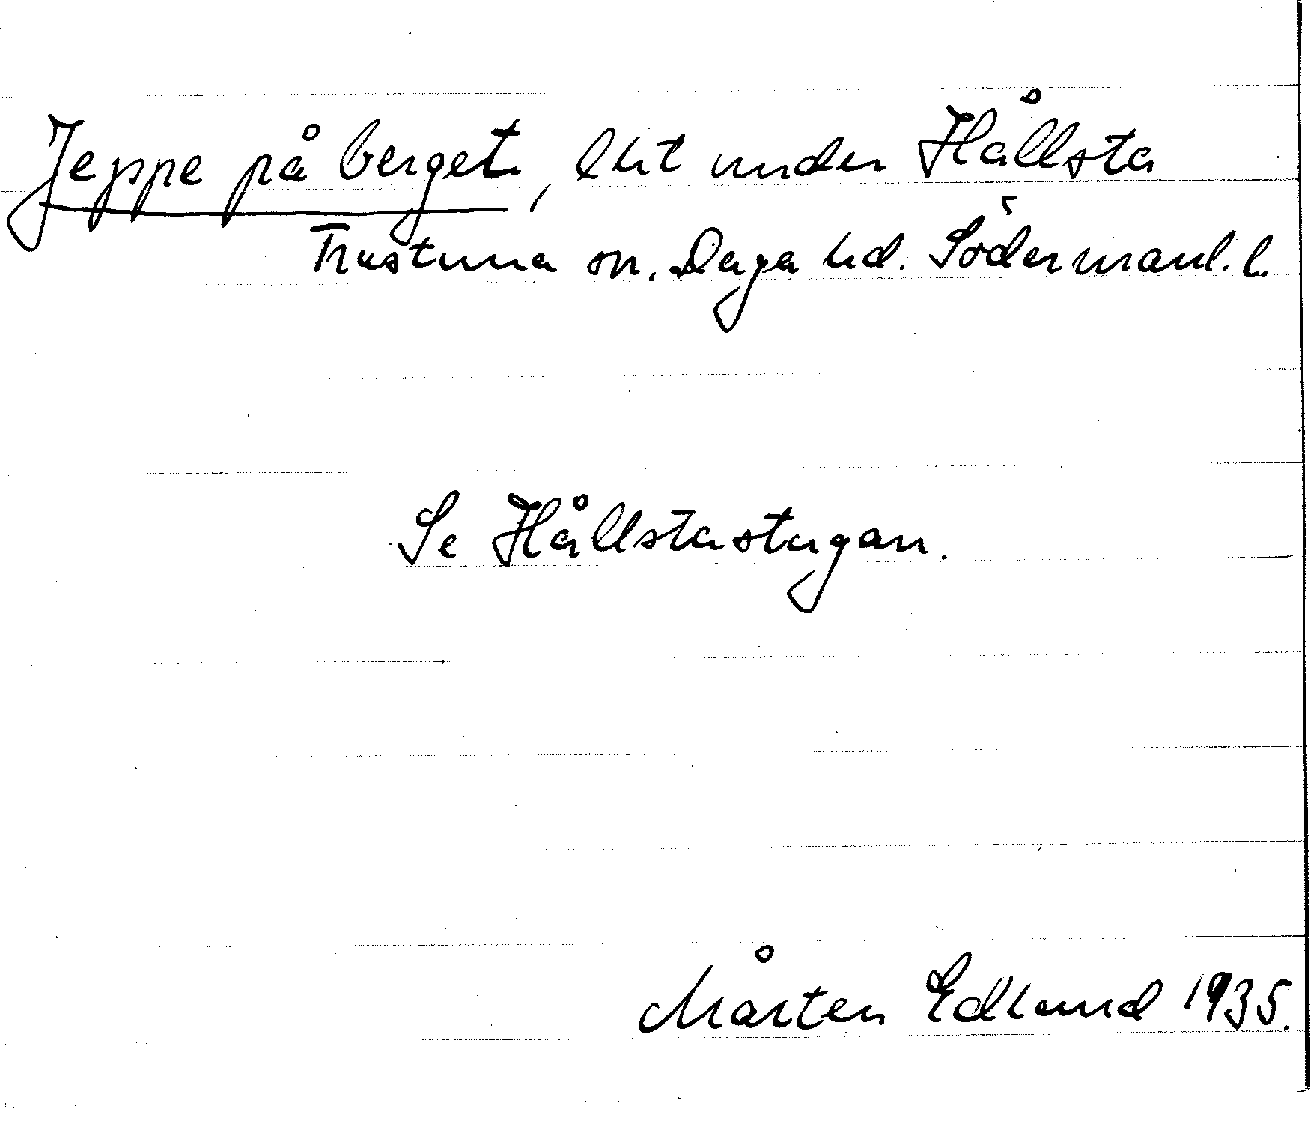 Jeppe på berget, lht under Hållsta
Frustuna sn. Daga hd. Södermanl. l.
Se Hållstastugan.
Mårten Edlund 1935.